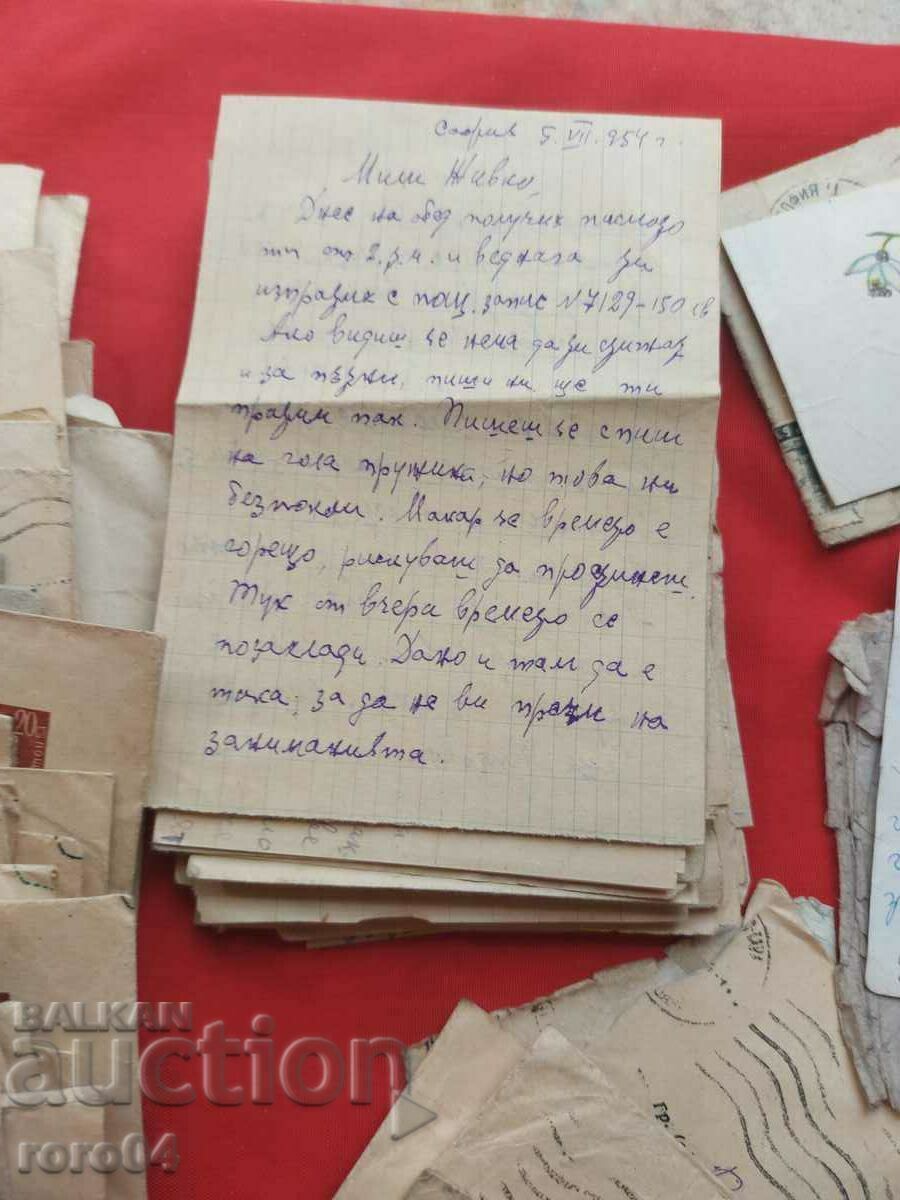 София 5.VII.954 г.
Мили Живко,
Днес на обед получих писмото
ти от 2.т.м. и веднага ти
изпратих с пощ. запис N 7129-150 лв
Ако видиш че нема да ти стигнат
и за пъзни, пиши ни ще ти
пратим пак. Пишеш че спиш
на гола пружина, но това ни
безпокои. Макар че времето е
горещо, рискуваш да простинеш.
Тук от вчера времето се
позахлади. Дано и там да е
така, за да не ви пречи на
заниманията.
20 ст
СОФИЯ
гр.
BALKAN
auction
roro04